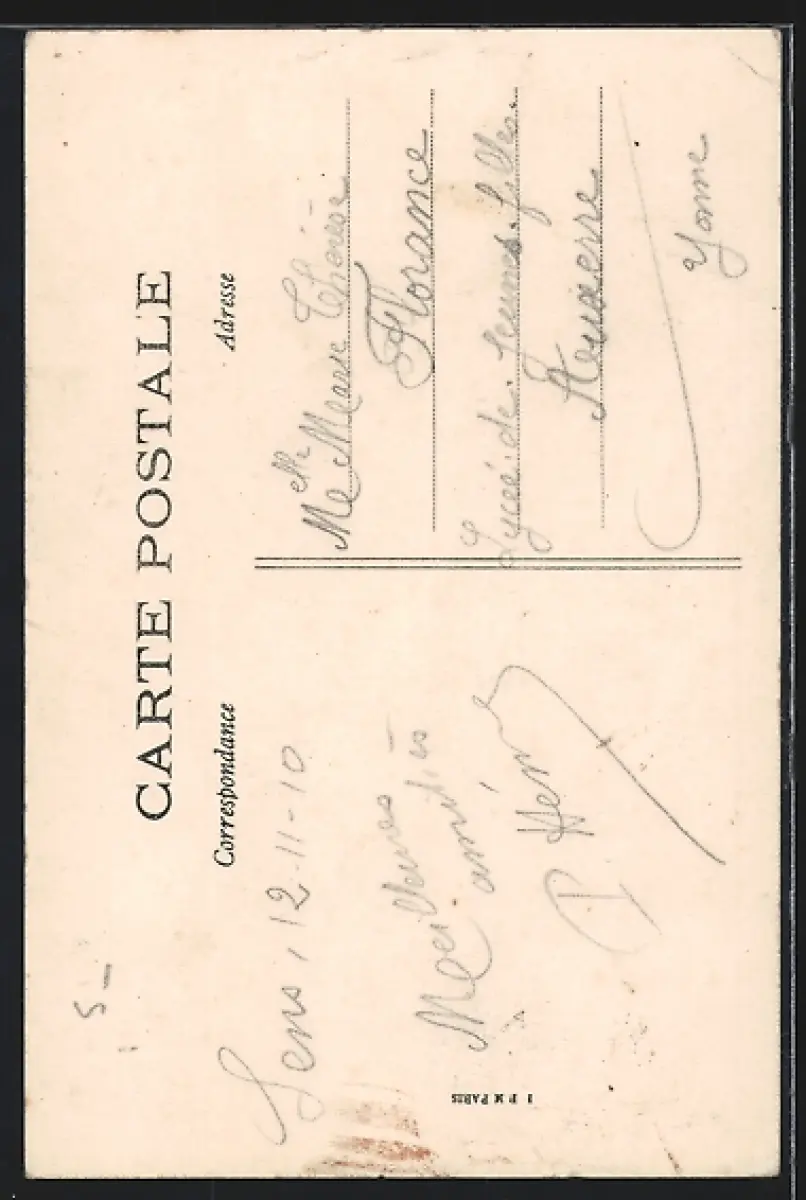 CARTE POSTALE
Correspondance
Adresse
5 –
Sens, 12-11-10
Meilleures
amitiés
P Henry
Melle Marie Thérèse
Florance
Lycée de Jeunes filles
Auxerre
Yonne
I P M PARIS